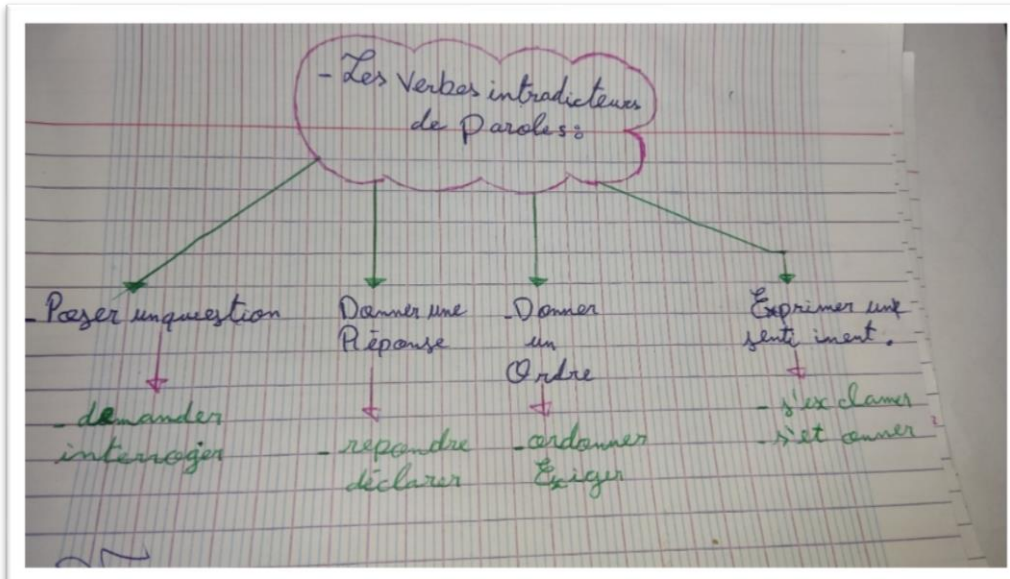 - Les Verbes intradicteurs
de Paroles:
- Poser un question
demander
interroger
Donner une
Réponse
- répondre
déclarer
- Donner
un
Ordre
- ordonner
Exiger
Exprimer une
senti ment.
- s'ex clamer
- s'et onner